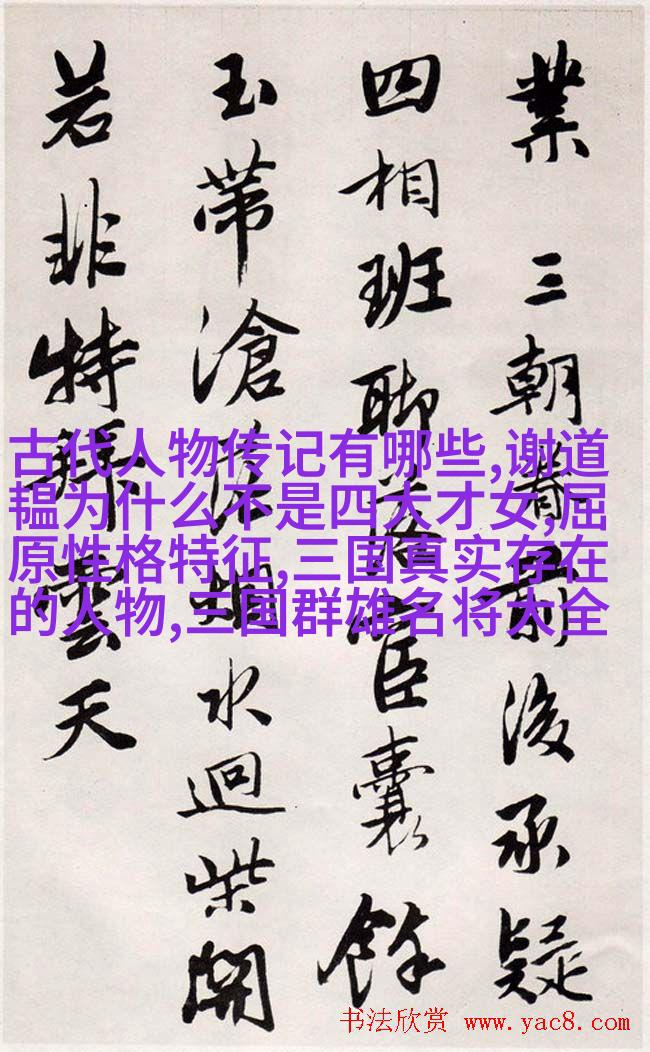 業 三朝前後承疑
四相班聊落宦囊餘
玉帶滄水迴柴開
若非特拜雲天
古代人物传记有哪些,谢道
韫为什么不是四大才女,屈
原性格特征,三国真实存在
的人物,三国群雄名将大全
书法欣赏 www.yac8.com